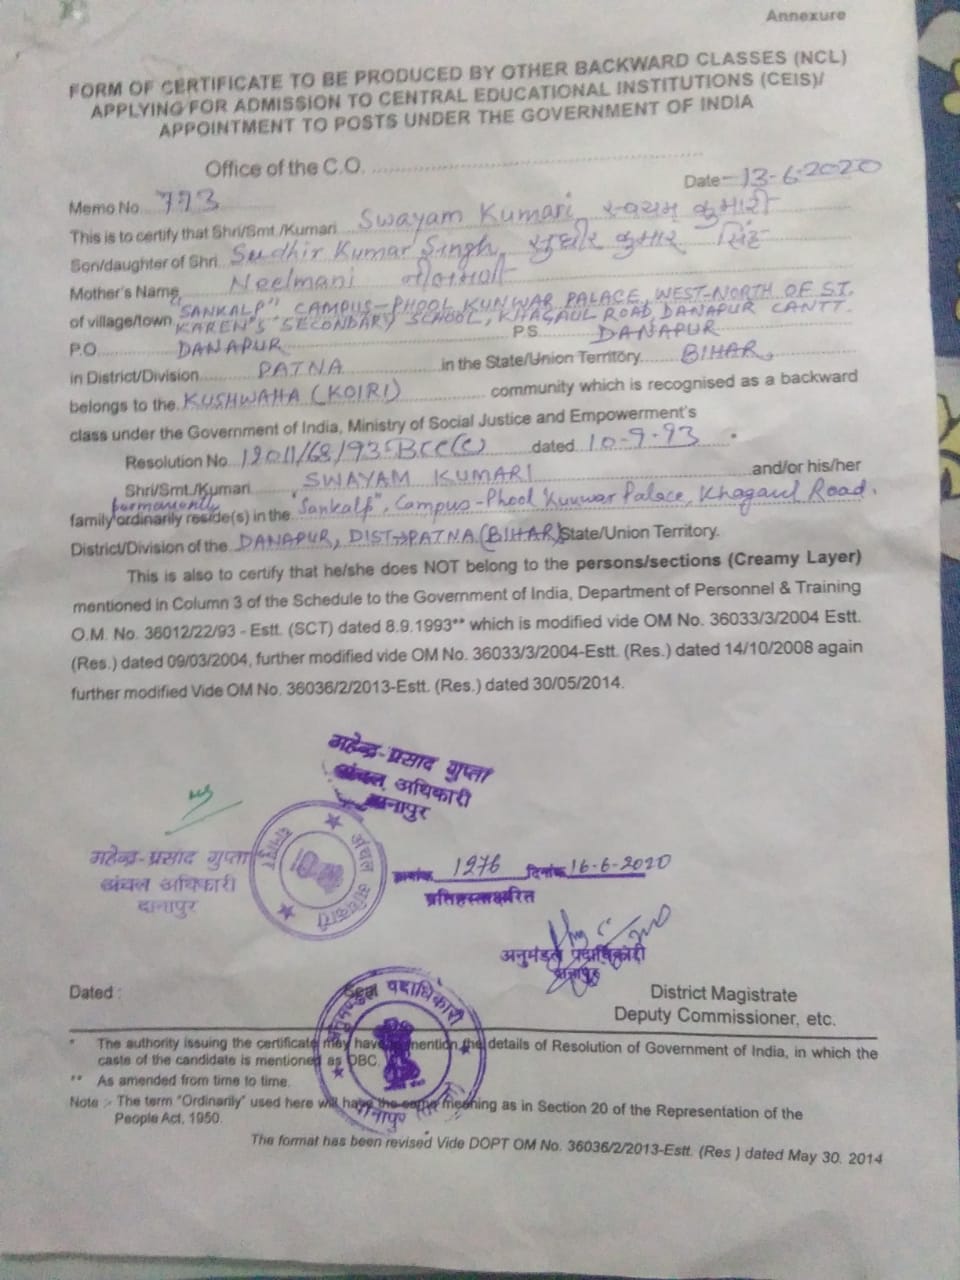 Annexure
FORM OF CERTIFICATE TO BE PRODUCED BY OTHER BACKWARD CLASSES (NCL)
APPLYING FOR ADMISSION TO CENTRAL EDUCATIONAL INSTITUTIONS (CEIS)/
APPOINTMENT TO POSTS UNDER THE GOVERNMENT OF INDIA
Office of the C.O. ..........
Date - 13-6-2020
Memo No. 773
This is to certify that Shri/Smt./Kumari Swayam Kumari, स्वयम कुमारी
Son/daughter of Shri. Sudhir Kumar Singh, सुधीर कुमार सिंह
Mother's Name Neelmani नीलमणी
of village/town "SANKALP" CAMPUS-PHOOL KUNWAR PALACE, WEST-NORTH OF ST.
KAREN'S SECONDARY SCHOOL, KHAGAUL ROAD, DANAPUR CANTT.
P.O. DANAPUR P.S. DANAPUR
in District/Division PATNA in the State/Union Territory BIHAR,
belongs to the KUSHWAHA (KOIRI) community which is recognised as a backward
class under the Government of India, Ministry of Social Justice and Empowerment's
Resolution No. 12011/68/93-BCC(C) dated 10-9-93.
Shri/Smt./Kumari SWAYAM KUMARI and/or his/her
permanently
family ordinarily reside(s) in the "Sankalp", Campus-Phool Kunwar Palace, Khagaul Road.
District/Division of the DANAPUR, DIST→PATNA (BIHAR) State/Union Territory.
This is also to certify that he/she does NOT belong to the persons/sections (Creamy Layer)
mentioned in Column 3 of the Schedule to the Government of India, Department of Personnel & Training
O.M. No. 36012/22/93 - Estt. (SCT) dated 8.9.1993** which is modified vide OM No. 36033/3/2004 Estt.
(Res.) dated 09/03/2004, further modified vide OM No. 36033/3/2004-Estt. (Res.) dated 14/10/2008 again
further modified Vide OM No. 36036/2/2013-Estt. (Res.) dated 30/05/2014.
महेन्द्र प्रसाद गुप्ता
अंचल अधिकारी
दानापुर
महेन्द्र प्रसाद गुप्ता
अंचल अधिकारी
दानापुर
अंचल अधिकारी दानापुर
क्रमांक 1276 दिनांक 16-6-2020
प्रतिहस्ताक्षरित
अनुमंडल पदाधिकारी
दानापुर
Dated :
Seal
District Magistrate
Deputy Commissioner, etc.
अनुमण्डल पदाधिकारी
दानापुर
* The authority issuing the certificate may have to mention the details of Resolution of Government of India, in which the
caste of the candidate is mentioned as OBC.
** As amended from time to time.
Note :- The term "Ordinarily" used here will have the same meaning as in Section 20 of the Representation of the
People Act, 1950.
The format has been revised Vide DOPT OM No. 36036/2/2013-Estt. (Res ) dated May 30. 2014